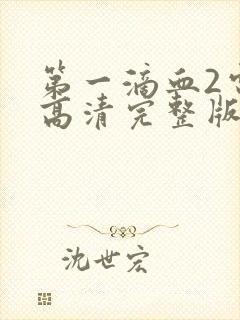 第一滴血2
高清完整版
沈世宏